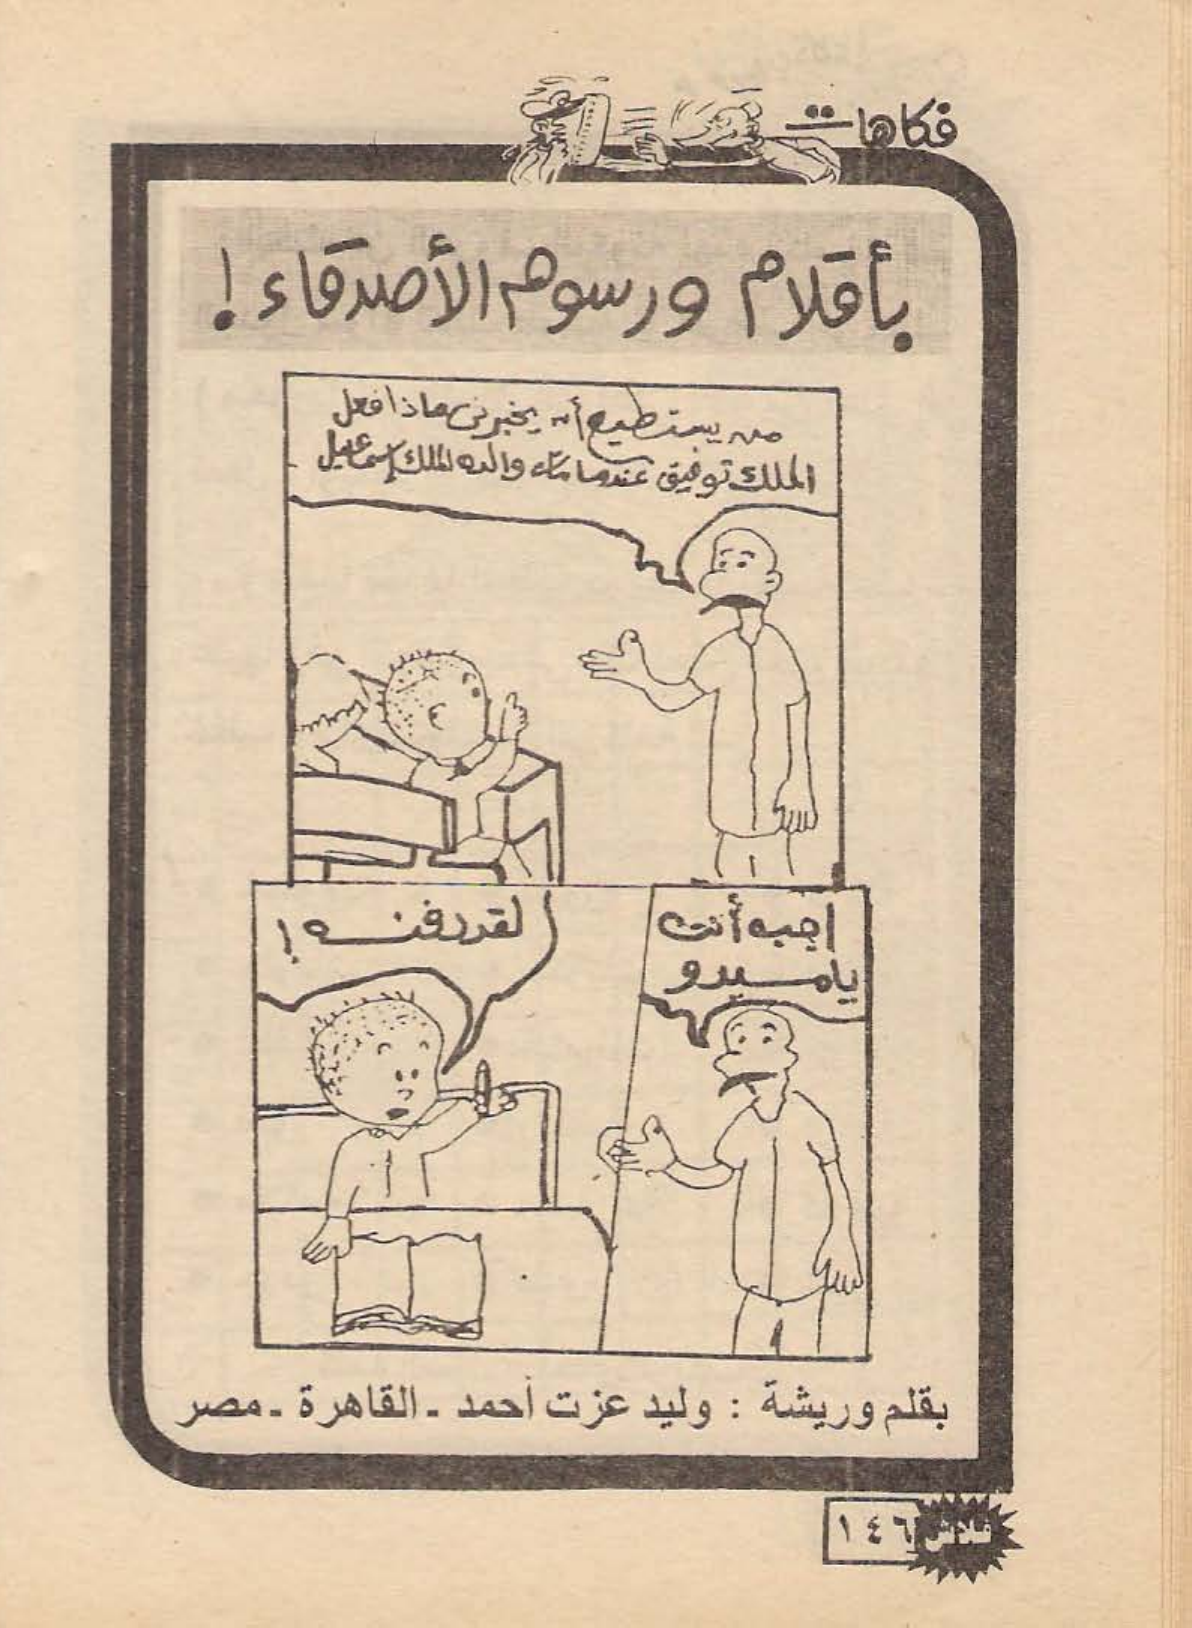 فكاهات
بأقلام ورسوم الأصدقاء!
من يستطيع أن يخبرنى ماذا فعل
الملك توفيق عندما مات والده الملك إسماعيل
اجب أنت
ياميدو
لقد دفنه!
بقلم وريشة : وليد عزت أحمد - القاهرة - مصر
فلاش ١٤٦